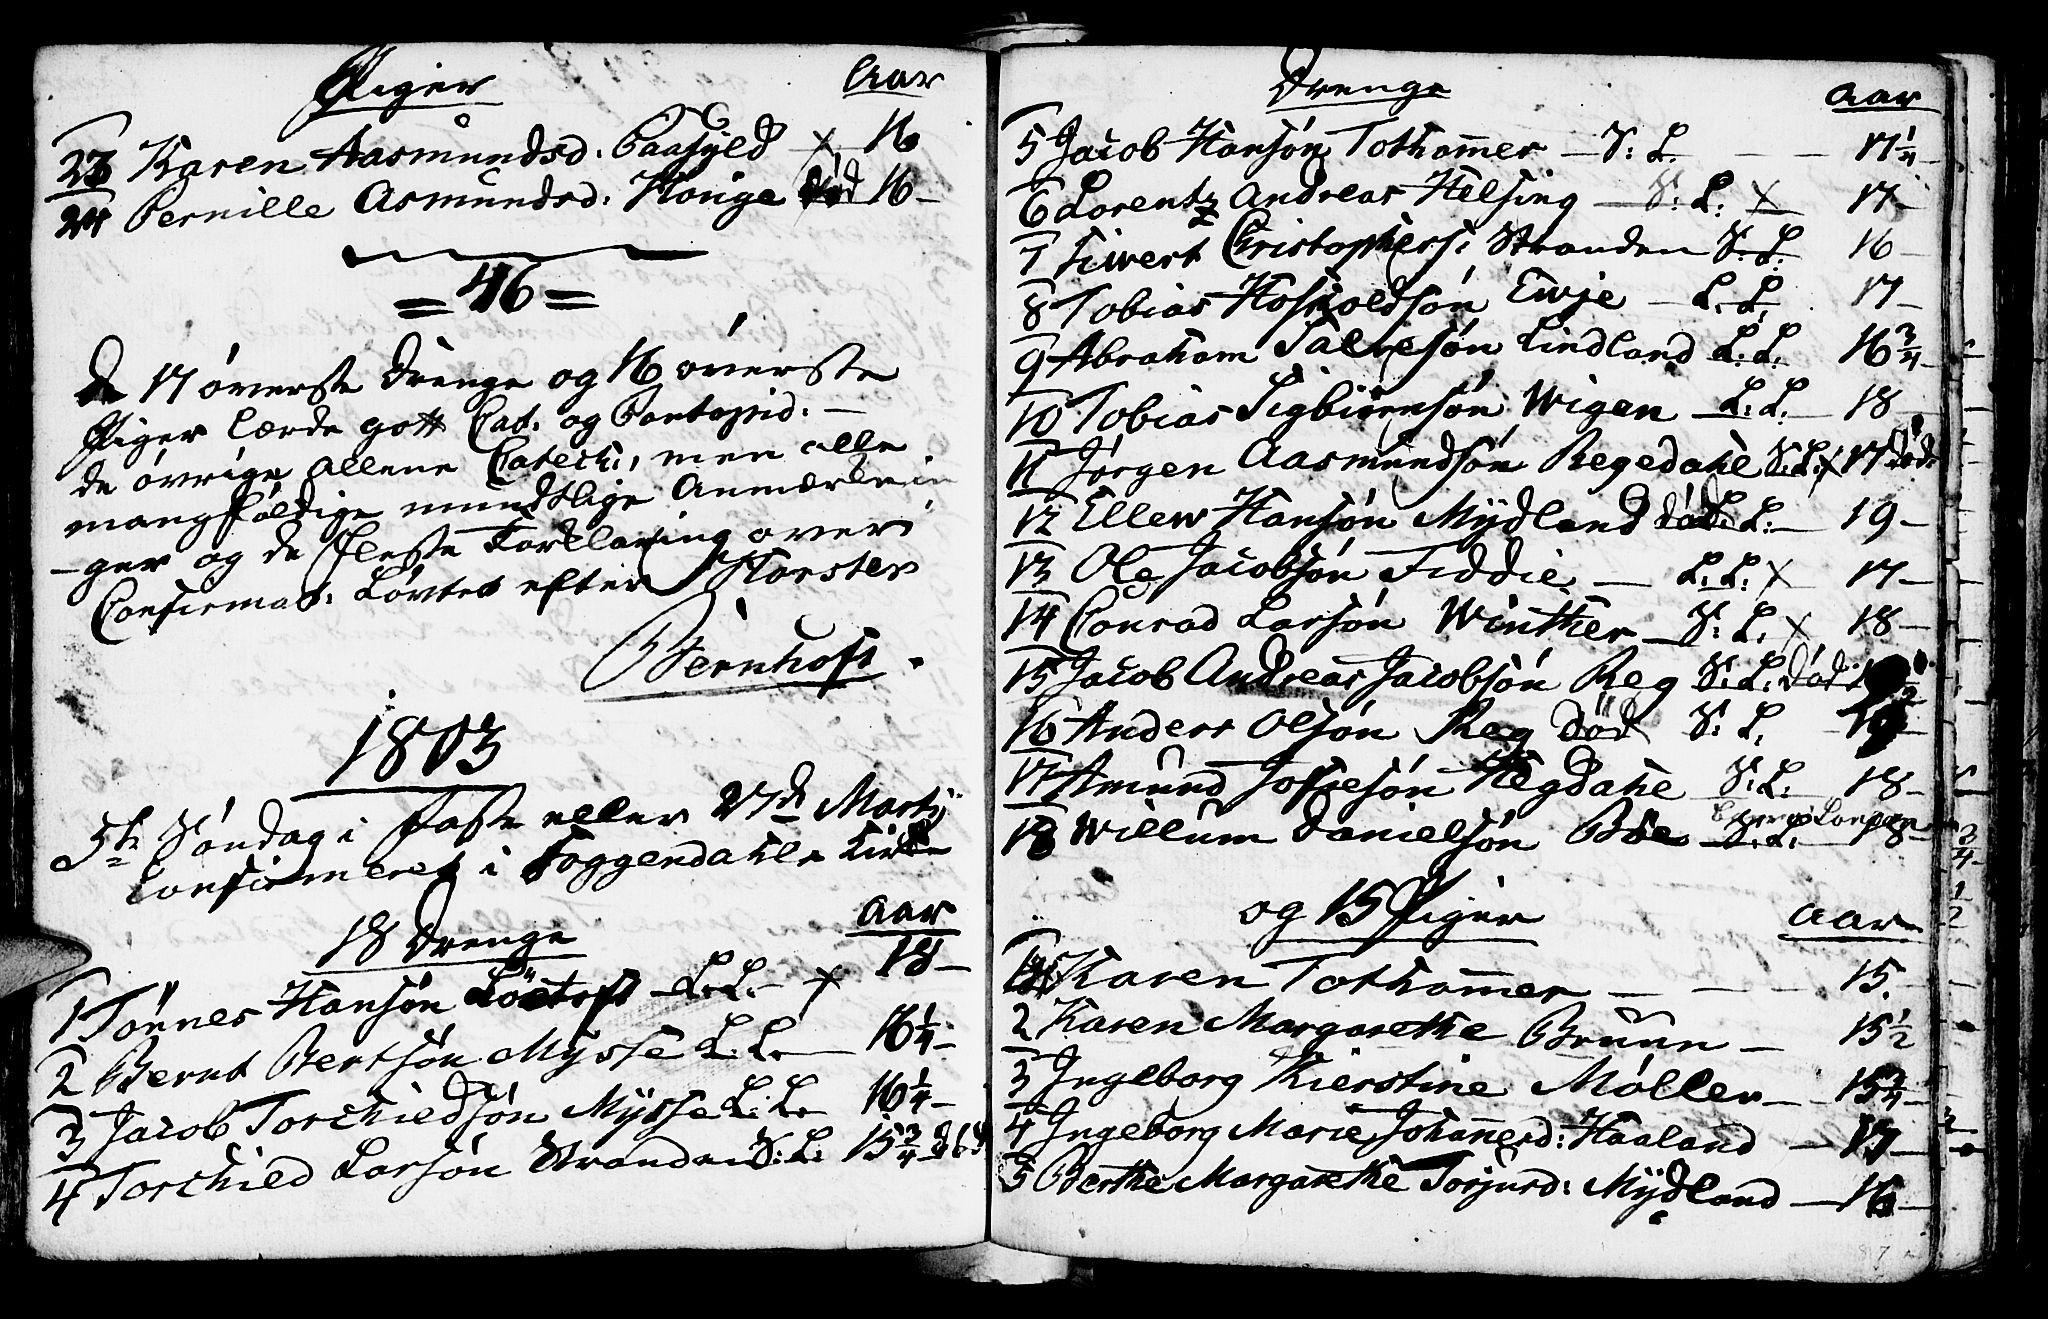 Piger Aar
23 Karen Aasmundsd: Paasyld x 16
24 Pernille Asmundsd: Houge død 16 –
= 46 =
de 17 øverste Drenge og 16 øverste
Piger lærde gott Cat: og Pontoppid: –
de øvrige allene Catech:, men alle
mangfoldige mundtlige Anmærknin
-ger og de fleste Forklaring over
Confirmat: Løvtet efter Horster
Bernhoft.
1803
5te Søndag i Faste eller 27de Martij
confirmeret i Soggendahls Kirke
18 Drenge Aar
1 Tønnes Hansøn L.L. x 18 –
2 Bernt Bertsøn Mysse L.L. – 16 1/4 –
3 Jacob Torchieldsøn Mysse L.L. 16 1/4 –
4 Torchied Larsøn Stranden S:L: 15 3/4 død
Drenge Aar
5 Jacob Hansøn Tothammer – S: L. – – 17 1/4 –
6 Lorentz Andreas Helsing – S: L: x 17 –
7 Sivert Christophers: Stranden S:L: 16 –
8 Tobias Hoskoldsøn Ewje – L.L. 17 –
9 Abraham Salvesøn Lindland L:L: 16 3/4 –
10 Tobias Sigbiørnsøn Wigen – L:L. – 18 –
11 Jørgen Aasmundsøn Regedahl S:L: x 17 død
12 Ellew Hansøn Mÿdland død L: – 19 –
13 Ole Jacobsøn Fiddie – L.L: x 17 –
14 Conrad Larsøn Winther – S: L. x 18 –
15 Jacob Andreas Jacobsøn Reg S:L: Død
16 Anders Olsøn Reg død S: L.
17 Amund Hegdahl S:L. 18 –
18 Willum Danielsøn Bøe S.L. 18 –
og 15 Piger Aar
1 Karen Tothammer – – – 15.
2 Karen Margarethe Bruun – 15 1/2
3 Ingeborg Kierstine Møller – 15 3/4 –
4 Ingeborg Marie Johannesd: Haaland – 17 –
5 Berthe Margarethe Torjusd: Mÿdland – 16 –